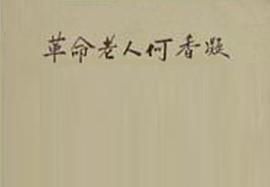 革命老人何香凝